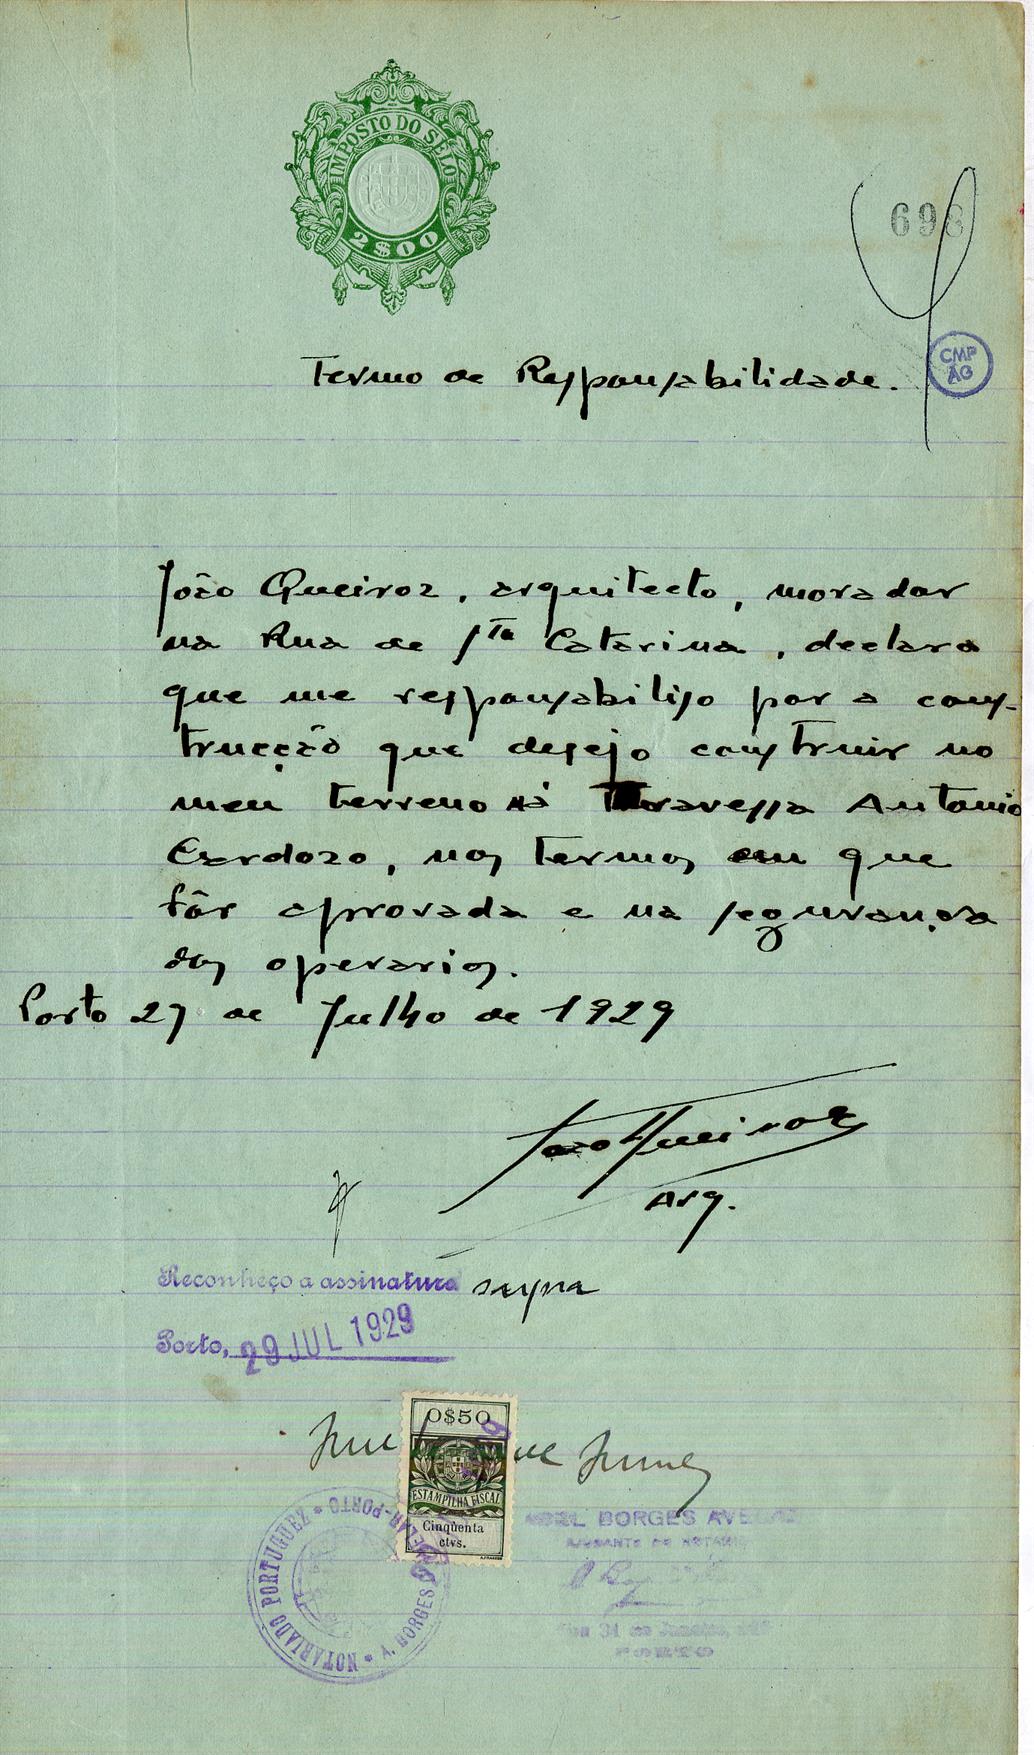 IMPOSTO DO SÊLO
2$00
698
CMP
AG
Termo de Responsabilidade.
João Queiroz, arquitecto, morador
na Rua de Sta Catarina, declara
que me responsabiliso por a cons-
trucção que desejo construir no
meu terreno á Travessa Antonio
Cardozo, nos termos em que
fôr aprovada e na segurança
dos operarios.
Porto 27 de Julho de 1929
João Queiroz
Arq.
Reconheço a assinatura supra
Porto, 29 JUL 1929
0$50
ESTAMPILHA FISCAL
Cinqùenta
ctvs.
NOTARIADO PORTUGUEZ * A. BORGES AVELAR-PORTO *
ABEL BORGES AVELAR
AJUDANTE DO NOTARIO
31 de Janeiro,
PORTO